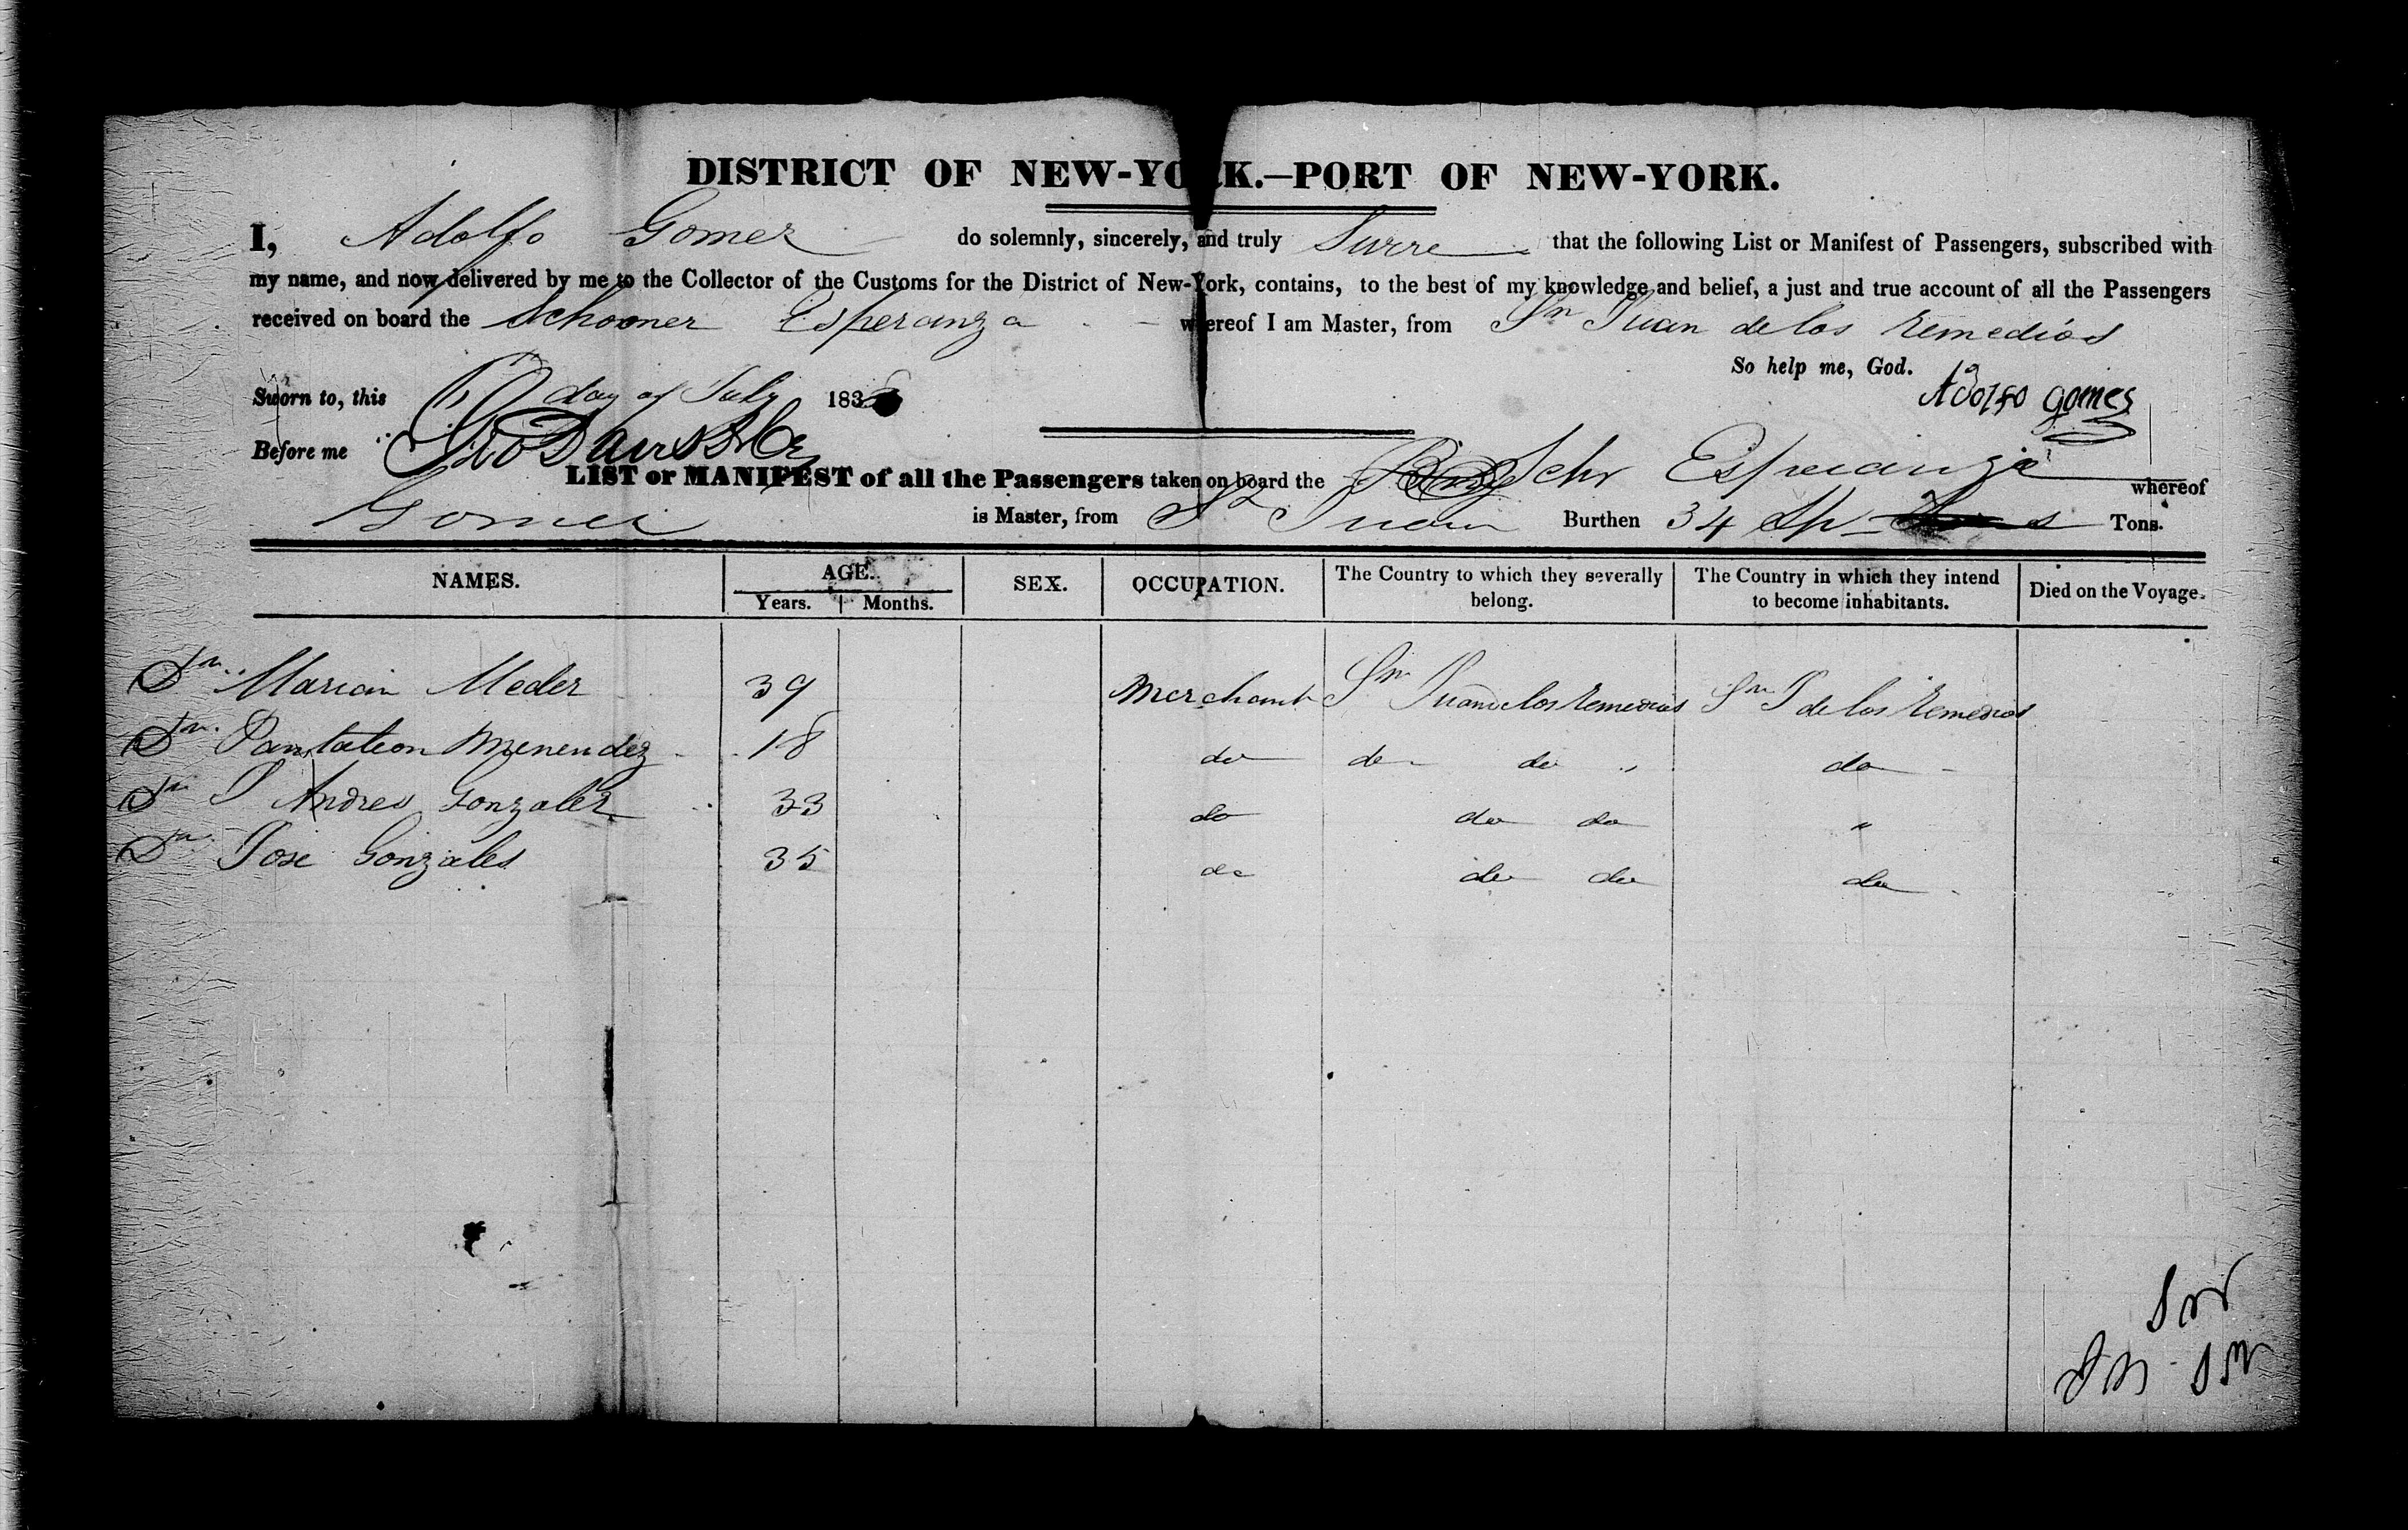 DISTRICT OF NEW-YORK.—PORT OF NEW-YORK.
I, Adolfo Gomez do solemnly, sincerely, and truly Swere that the following List or Manifest of Passengers, subscribed with
my name, and now delivered by me to the Collector of the Customs for the District of New-York, contains, to the best of my knowledge and belief, a just and true account of all the Passengers
received on board the Schooner Esperanza whereof I am Master, from Sn Juan de los Remedios
So help me, God.
Sworn to, this day of July 183
Adolfo gomes
Before me
LIST or MANIFEST of all the Passengers taken on board the Schr Esperanza whereof
Gomez is Master, from Sn Juan Burthen 34 Sp Tons.
NAMES. AGE. SEX. OCCUPATION. The Country to which they severally belong. The Country in which they intend to become inhabitants. Died on the Voyage.
Years. Months.
Dn Marian Meder 39 Merchant Sn Juan de los Remedios Sn J de los Remedios
Dn Pantaleon Menendez 18 do do do " do
Dn J Andres Gonzalez 33 do do do "
Dn Jose Gonzales 35 do do do do